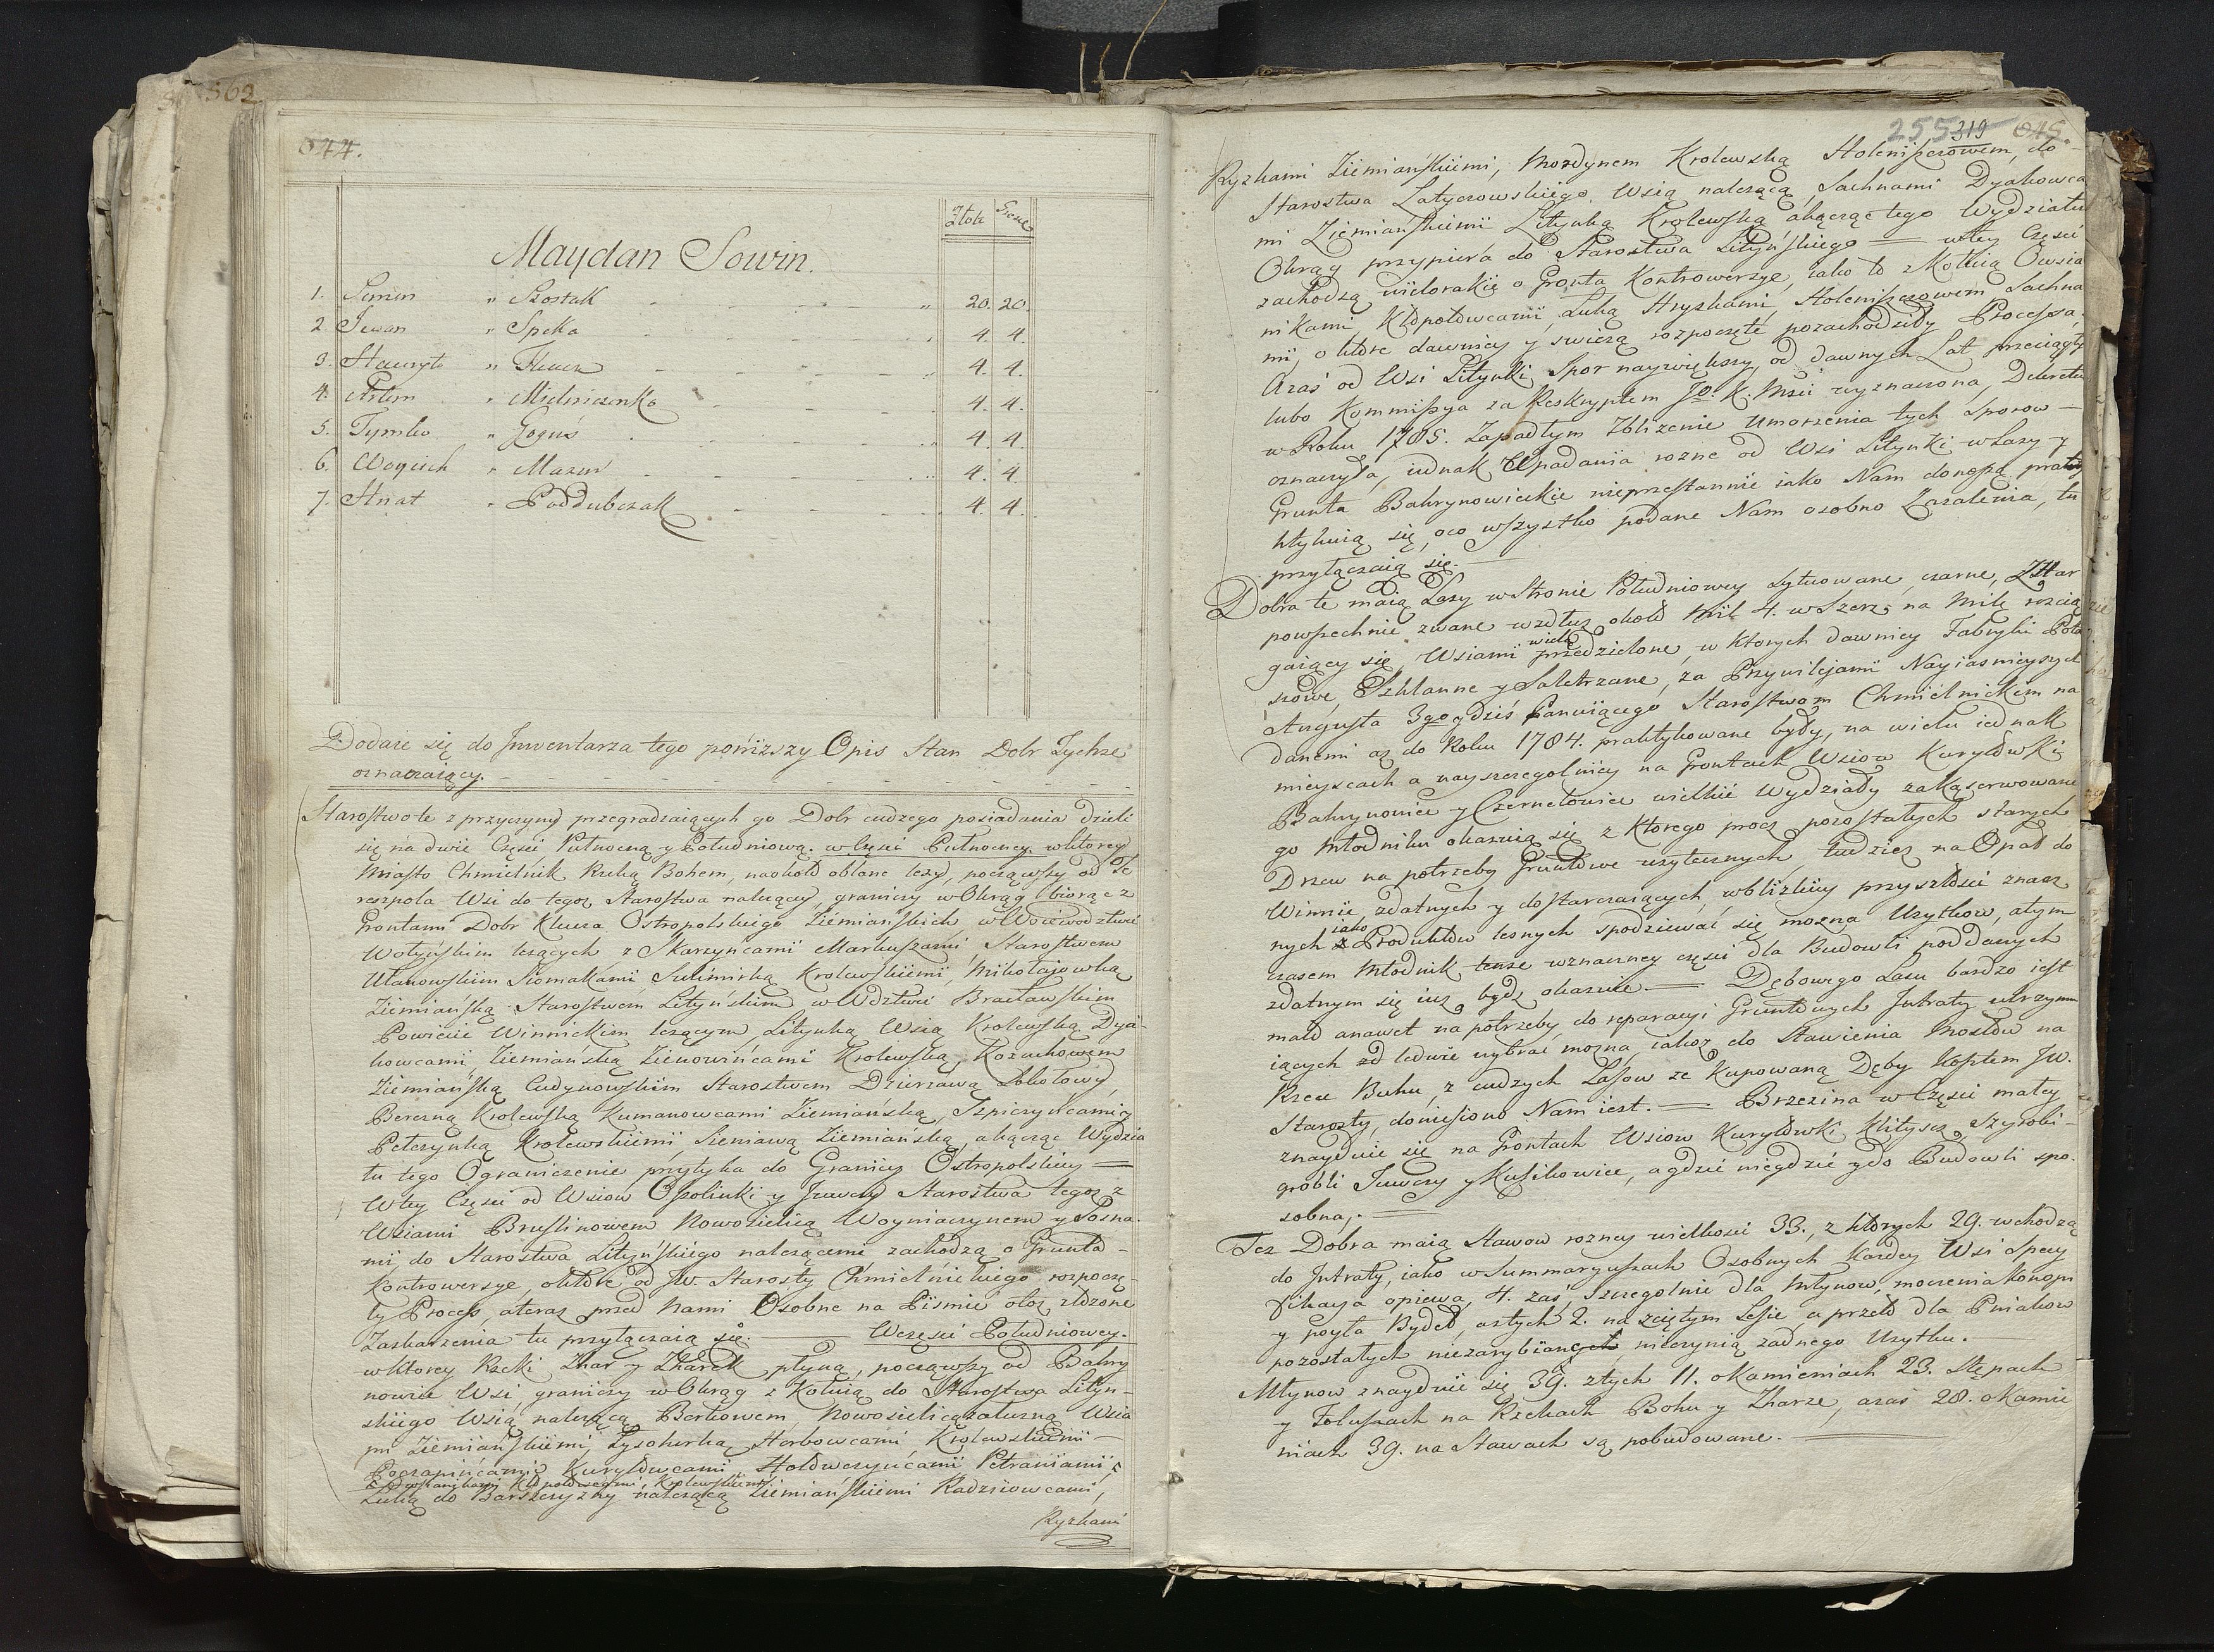 562
644.
Złote Grosze
Maydan Sowin.
1. Semen " Szostak 20. 20.
2. Iwan " Speka 4. 4.
3. Hawryło " Tkacz 4. 4.
4. Artem " Mielniczenko 4. 4.
5. Tymko " Goguś 4. 4.
6. Woyciech " Mazur 4. 4.
7. Hnat " Poddubczak 4. 4.
Dodaie się do Inwentarza tego poniższy Opis Stan Dobr Tychże
oznaczaiący.
Starostwo te z przyczyny przegradzaiących go Dobr cudzego posiadania dzieli
się na dwie Części Pułnocną y Południową. w Części Pułnocney. w ktorey
Miasto Chmielnik Rzeką Bohem, naokoło oblane leży, począwszy od Te
reszpola Wsi do tegoż Starostwa należący, graniczy w Okrąg biorąc z
Grontami Dobr Klucza Ostropolskiego Ziemiańskich, w Woiewodztwie
Wołyńskim leżących z Skarzyńcami Markuszami, Starostwem
Ułanowskim Siomakami Sulimirką Krolewskiemi, Mikołajowką
Ziemiańską Starostwem Lityńskim w Wdztwie Bracławskim
Powiecie Winnickim leżącym, Litynką Wsią Krolewską Dya-
kowcami, Ziemiańską Zienowińcami Krolewską, Kozuchowem
Ziemiańską Cudynowskim Starostwem Dzierzawą Sokołowy
Berezną Krolewską Kumanowcami Ziemiańską, Szpiczyńcami y
Peteczynką Krolewskiemi, Sieniawą Ziemiańską, akącząc Wydzia
łu tego Ograniczenie przytyka do Granicy Ostropolskiey —
W tey Części od Wsiow Opolinki y Iwczy Starostwa tegoż z
Wsiami Bruslinowem Nowosielicą Woyniaczynem y Sosna
mi, do Starostwa Lityńskiego należącemi zachodzą o Grunta -
Kontrowersye, o ktore od JW. Starosty Chmielnickiego rozpoczę-
ty Process, a teraz przed Nami Osobne na Pismie otoż złożone
Zaskarzenia tu przyłączaią się. — W części Południowey.
w ktorey Rzeki Zhar y Zharek płyną, począwszy od Bahry
nowiec Wsi, graniczy w Okrąg z Kotuią do Starostwa Lityn-
skiego Wsią należącą Berkowem, Nowosielicą zaturną Wsia
mi Ziemiańskiemi, Łysohorką Horbowcami, Krolewskiemi —
Poczapińcami Kuryłowcami Hołowczyńcami Petraniami
Kłopotowcami, Krolewskiemi
Luką do Barszczyzny należącą Ziemiańskiemi Radziowcami,
Ryzkami
255 319 645
Ryzkami Ziemiańskiemi, Mordynem Krolewską Holeniszczowem, do -
Starostwa Latyczowskiego Wsią należącą, Sachnami Dyakowca
mi Ziemiańskiemi Litynką Krolewską akącząc tego Wydziału
Okrąg przypiera do Starostwa Lityńskiego — w tey Części
zachodzą wielorakie o Gronta Kontrowersye, iako to z Kotuią Owsia
nikami Kłopotowcami, Luką Hryzkami, Holeniszczowem Sachna
mi, o ktore dawniey y swieżą rozpoczęte pozachodziły Processa,
Azaś od Wsi Litynki Spor naywiększy, od dawnych Lat przeciągły
lubo Kommissya za Reskryptem Jo. K. Msci wyznaczona, Dekretem
w Roku 1785. Zapadłym Zbliżenie Umorzenia tych Sporow —
oznaczyła, iednak Wpadania rożne od Wsi Litynki w Lasy y
Grunta Bahrynowieckie nieprzestannie iako Nam donoszą prakty
ktykuią się, oco wszystko podane Nam osobno Zażalenia, tu
przyłączaią się. —
Dobra te maią Lasy w Stronie Południowey Sytuowane, czarne, Zhar
powszechnie zwane wzdłuż około Mil 4. w Szerz na Milę rozcią
gaiący się, Wsiami wielą przedzielone, w ktorych dawniey Fabryki Pota
szowe, Szklanne y Saletrzane, za Przywilejami Nayiasnieyszych
Augusta 3go y dziś Panuiącego Starostwom Chmielnickim na
danemi aż do Roku 1784. praktykowane były, na wielu iednak
mieyscach a nayszczegolniey na Grontach Wsiow Kuryłowki
Bahrynowiec y Czernełowiec wielkie Wydziały zakąserwowane
go Młodniku okazuią się z ktorego procz pozostałych starych
Drzew na potrzeby Gruntowe użytecznych, tudzież na Opał do
Winnic, zdatnych y dostarczaiących, w bliskiey przyszłości znacz
nych iako Produktow lesnych spodziewać się można Użytkow, a tym
czasem Młodnik tenże w znaczney części dla Budowli poddanych
zdatnym się iuż bydź okazuie. — Dębowego Lasu bardzo iest
mało anawet na potrzeby, do reparacyi Gruntownych Intraty utrzymu
iących zd ledwie wybrać można, iakoż do Stawienia Mostow na
Rzece Buhu, z cudzych Lasow ze Kupowaną Dęby kosztem JW.
Starosty, doniesiono Nam iest. — Brzezina w Części małey
znayduie się na Grontach Wsiow Kuryłowki, Klityszcz, Szyroki-
grobli Juwczy y Kusikowiec, a gdzie niegdzie y do Budowli spo-
sobna. —
Też Dobra maią Stawow rożney wielkości 33., z ktorych 29. wchodzą
do Intraty, iako w Summaryuszach Osobnych każdey Wsi Specy
fikacya opiewa, 4. zaś Szczegolnie dla Młynow, moczenia konopi
y poyła Bydeł, a z tych 2. na zciętym Lesie, a przeto dla Pniakow
pozostałych niezarybianych, nieczynią żadnego Użytku.
Młynow znayduie się 39. z tych 11. o kamieniach 23. Stępach
y Foluszach na Rzekach Bohu y Zharze, a zaś 28. o kamie
niach 39. na Stawach są pobudowane. —